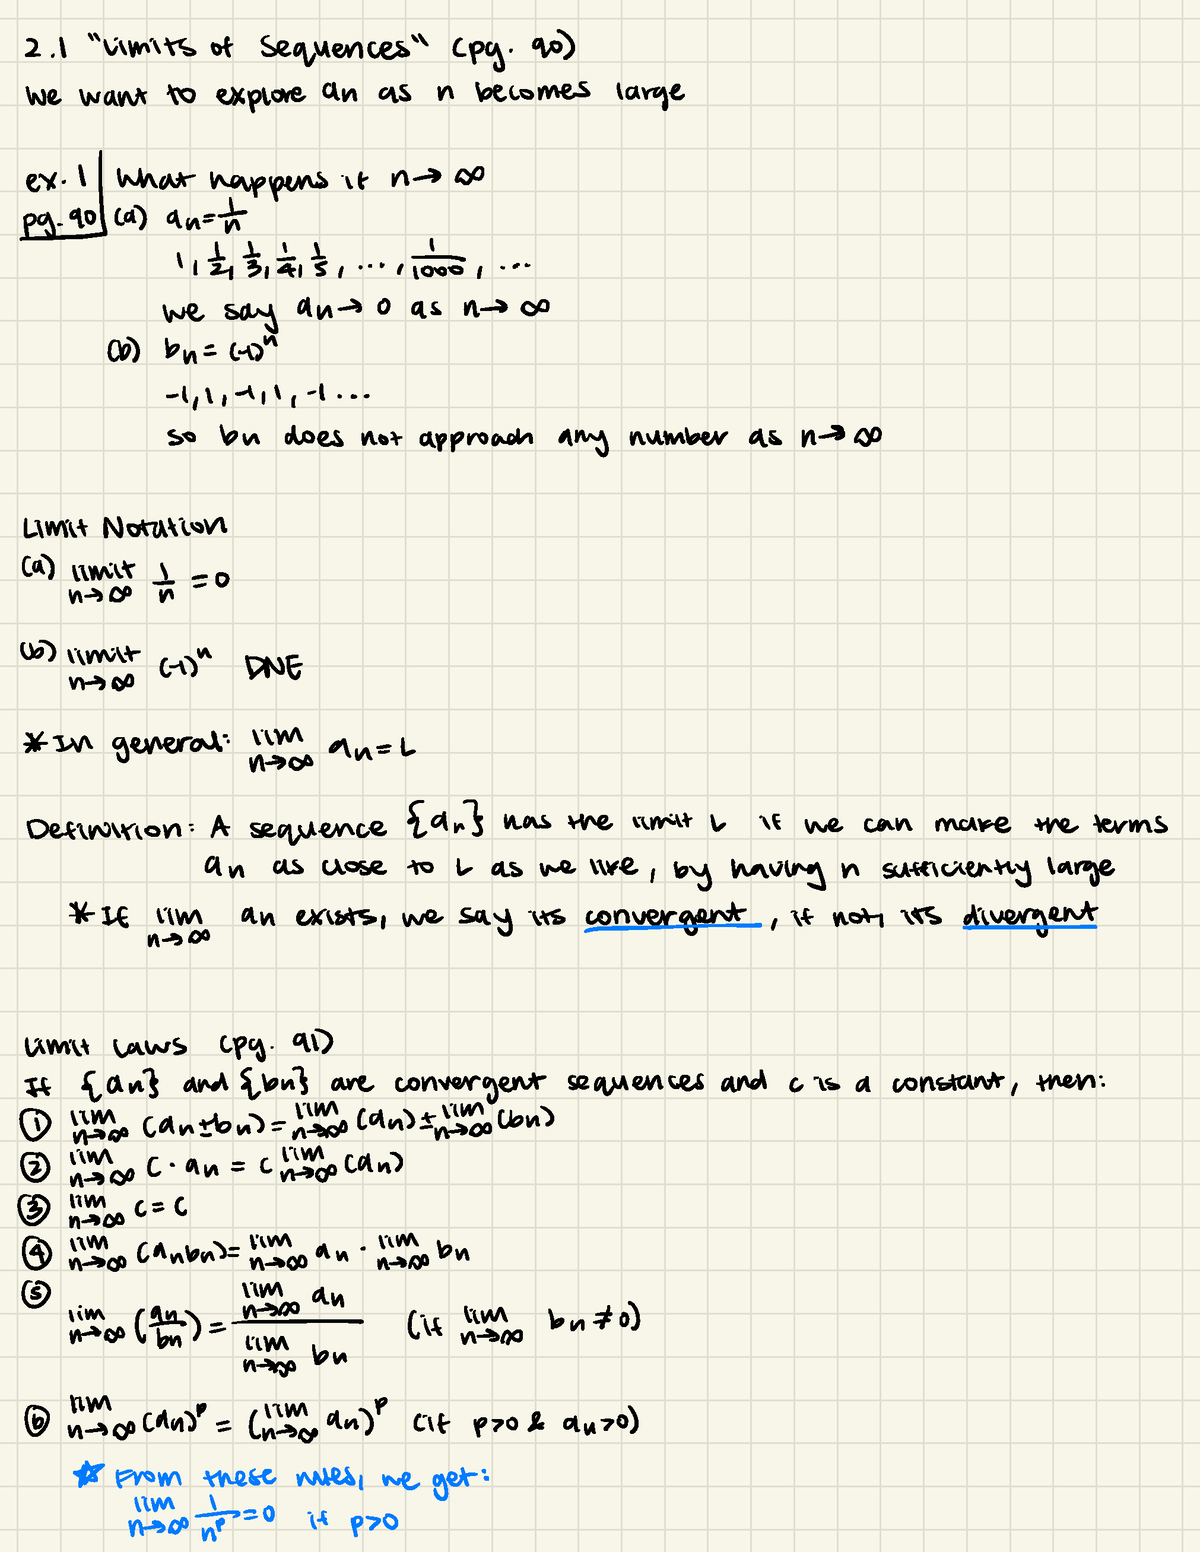 2.1 "Limits of Sequences" (pg. 90)
We want to explore an as n becomes large
ex. 1 | What happens if n→∞
pg. 90 (a) an = 1/n
1, 1/2, 1/3, 1/4, 1/5, ..., 1/1000, ...
we say an → 0 as n→∞
(b) bn = (-1)^n
-1, 1, -1, 1, -1 ...
so bn does not approach any number as n→∞
Limit Notation
(a) limit n→∞ 1/n = 0
(b) limit n→∞ (-1)^n DNE
* In general: lim n→∞ an = L
Definition: A sequence {an} has the limit L if we can make the terms
an as close to L as we like, by having n sufficiently large
* If lim n→∞ an exists, we say its convergent, if not, its divergent
Limit Laws (pg. 91)
If {an} and {bn} are convergent sequences and c is a constant, then:
① lim n→∞ (an±bn) = lim n→∞ (an) ± lim n→∞ (bn)
② lim n→∞ c·an = c lim n→∞ (an)
③ lim n→∞ c = c
④ lim n→∞ (anbn) = lim n→∞ an · lim n→∞ bn
⑤ lim n→∞ (an/bn) = lim n→∞ an / lim n→∞ bn (if lim n→∞ bn ≠ 0)
⑥ lim n→∞ (an)^p = (lim n→∞ an)^p (if p>0 & an>0)
☆ From these rules, we get:
lim n→∞ 1/n^p = 0 if p>0